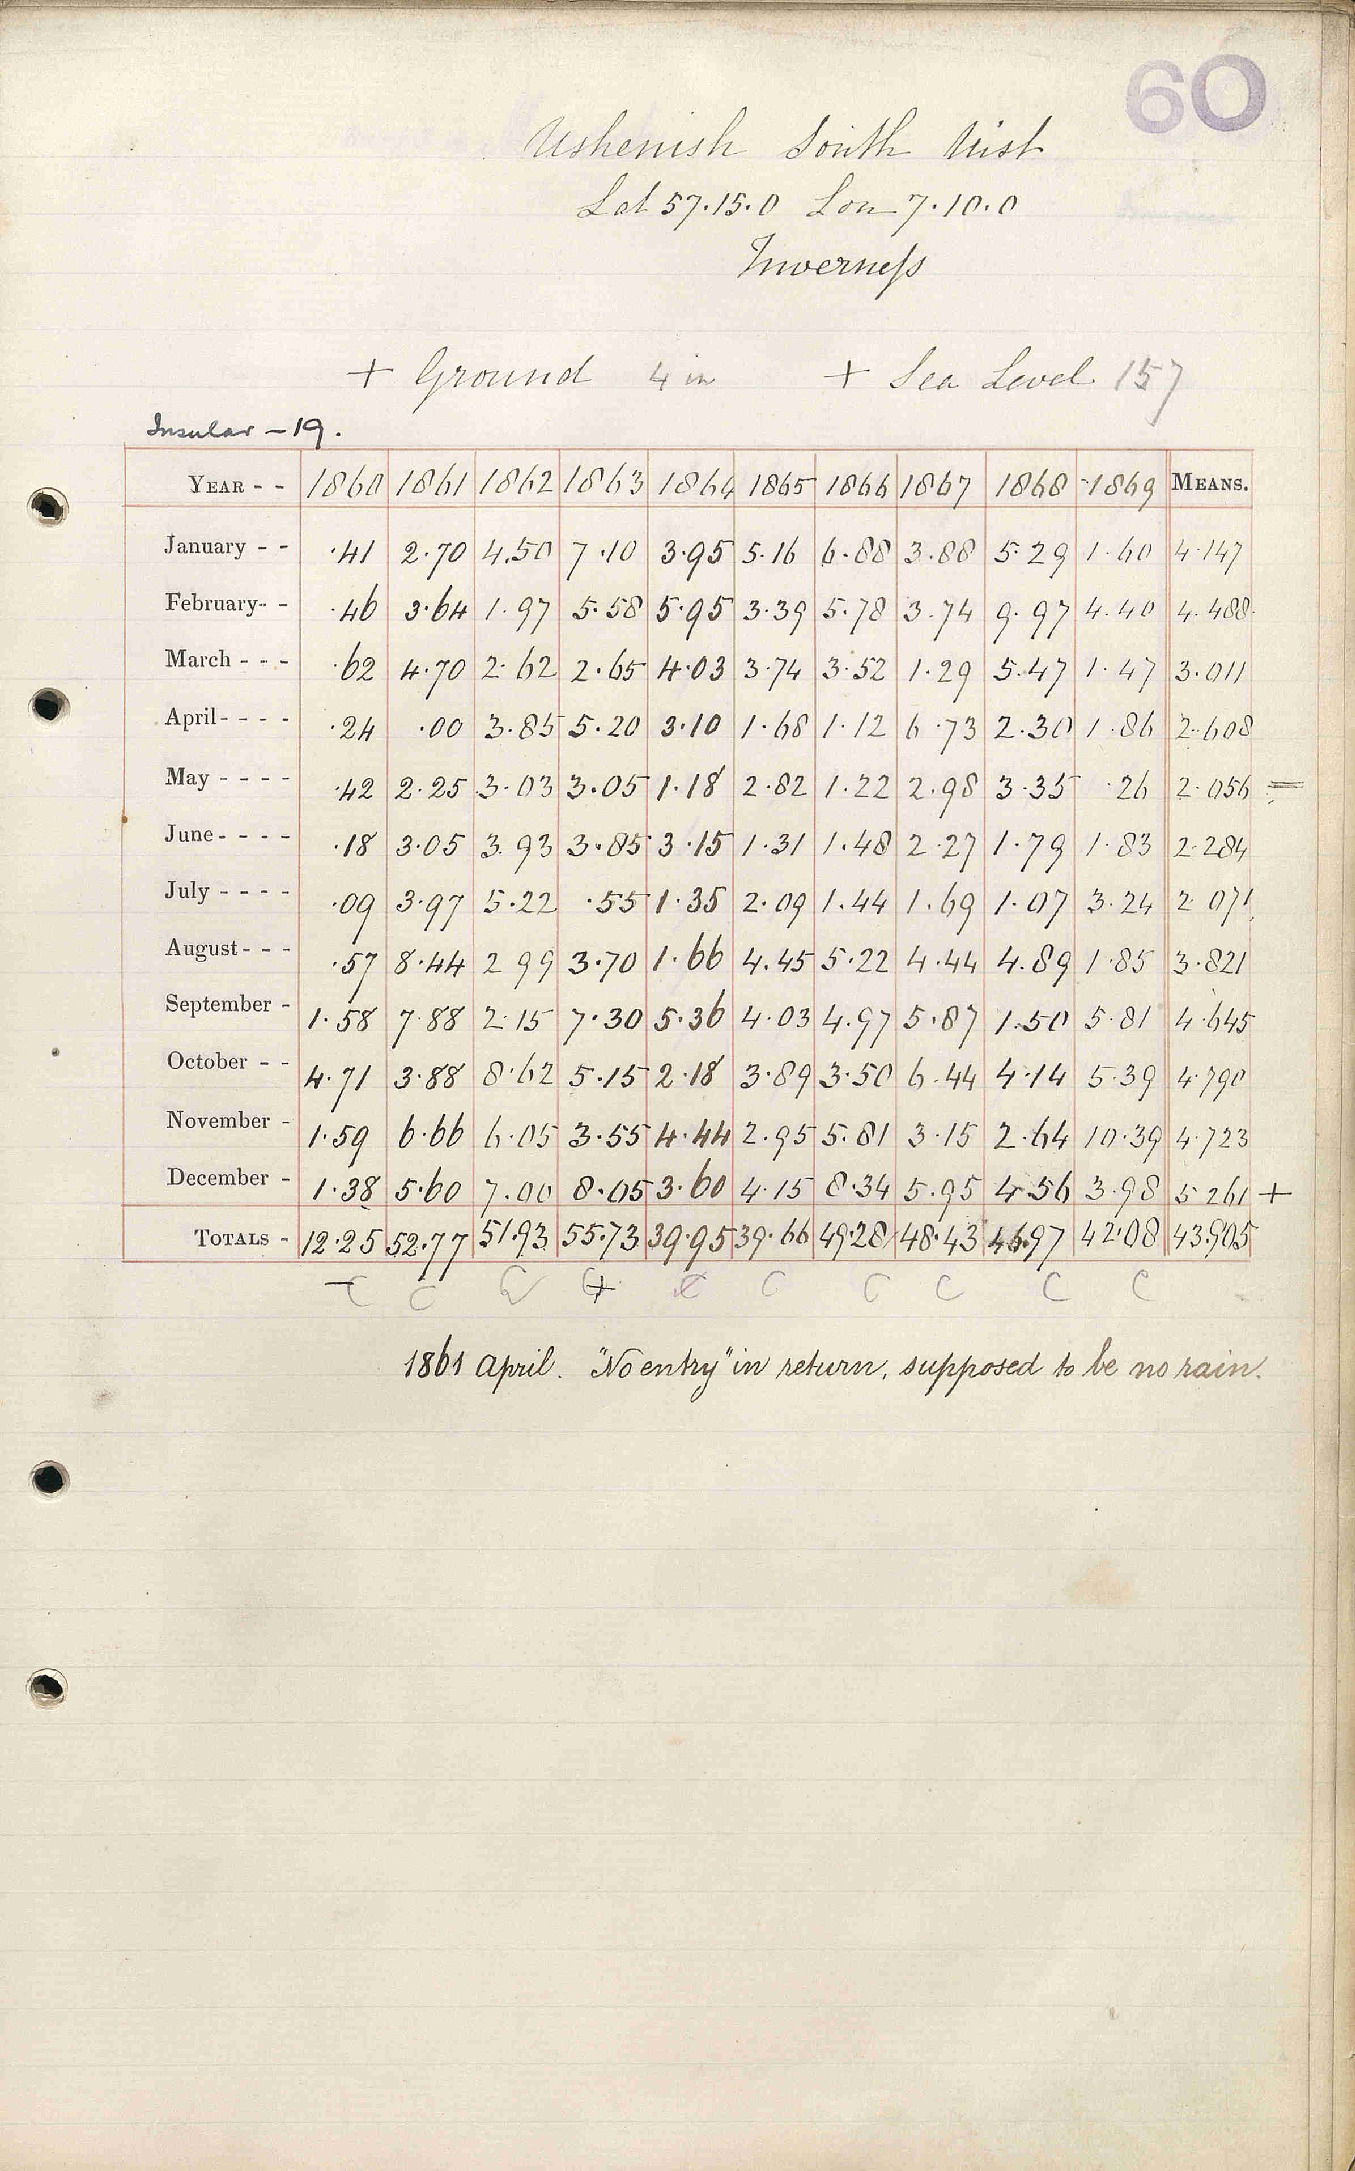 60
Ushenish South Uist
Lat 57.15.0 Lon 7.10.0
Inverness
+ Ground 4 in + Sea Level 157
Insular - 19.
YEAR - - 1860 1861 1862 1863 1864 1865 1866 1867 1868 1869 MEANS.
January - - .41 2.70 4.50 7.10 3.95 5.16 6.88 3.88 5.29 1.60 4.147
February- - .46 3.64 1.97 5.58 5.95 3.39 5.78 3.74 9.97 4.40 4.488
March - - - .62 4.70 2.62 2.65 4.03 3.74 3.52 1.29 5.47 1.47 3.011
April- - - - .24 .00 3.85 5.20 3.10 1.68 1.12 6.73 2.30 1.86 2.608
May - - - - .42 2.25 3.03 3.05 1.18 2.82 1.22 2.98 3.35 .26 2.056 =
June- - - - .18 3.05 3.93 3.85 3.15 1.31 1.48 2.27 1.79 1.83 2.284
July - - - - .09 3.97 5.22 .55 1.35 2.09 1.44 1.69 1.07 3.24 2.071
August- - - .57 8.44 2.99 3.70 1.66 4.45 5.22 4.44 4.89 1.85 3.821
September - 1.58 7.88 2.15 7.30 5.36 4.03 4.97 5.87 1.50 5.81 4.645
October - - 4.71 3.88 8.62 5.15 2.18 3.89 3.50 6.44 4.14 5.39 4.790
November - 1.59 6.66 6.05 3.55 4.44 2.95 5.81 3.15 2.64 10.39 4.723
December - 1.38 5.60 7.00 8.05 3.60 4.15 8.34 5.95 4.56 3.98 5.261 +
TOTALS - 12.25 52.77 51.93 55.73 39.95 39.66 49.28 48.43 46.97 42.08 43.905
- C C C C + C C C C C C
1861 April. "No entry" in return, supposed to be no rain.